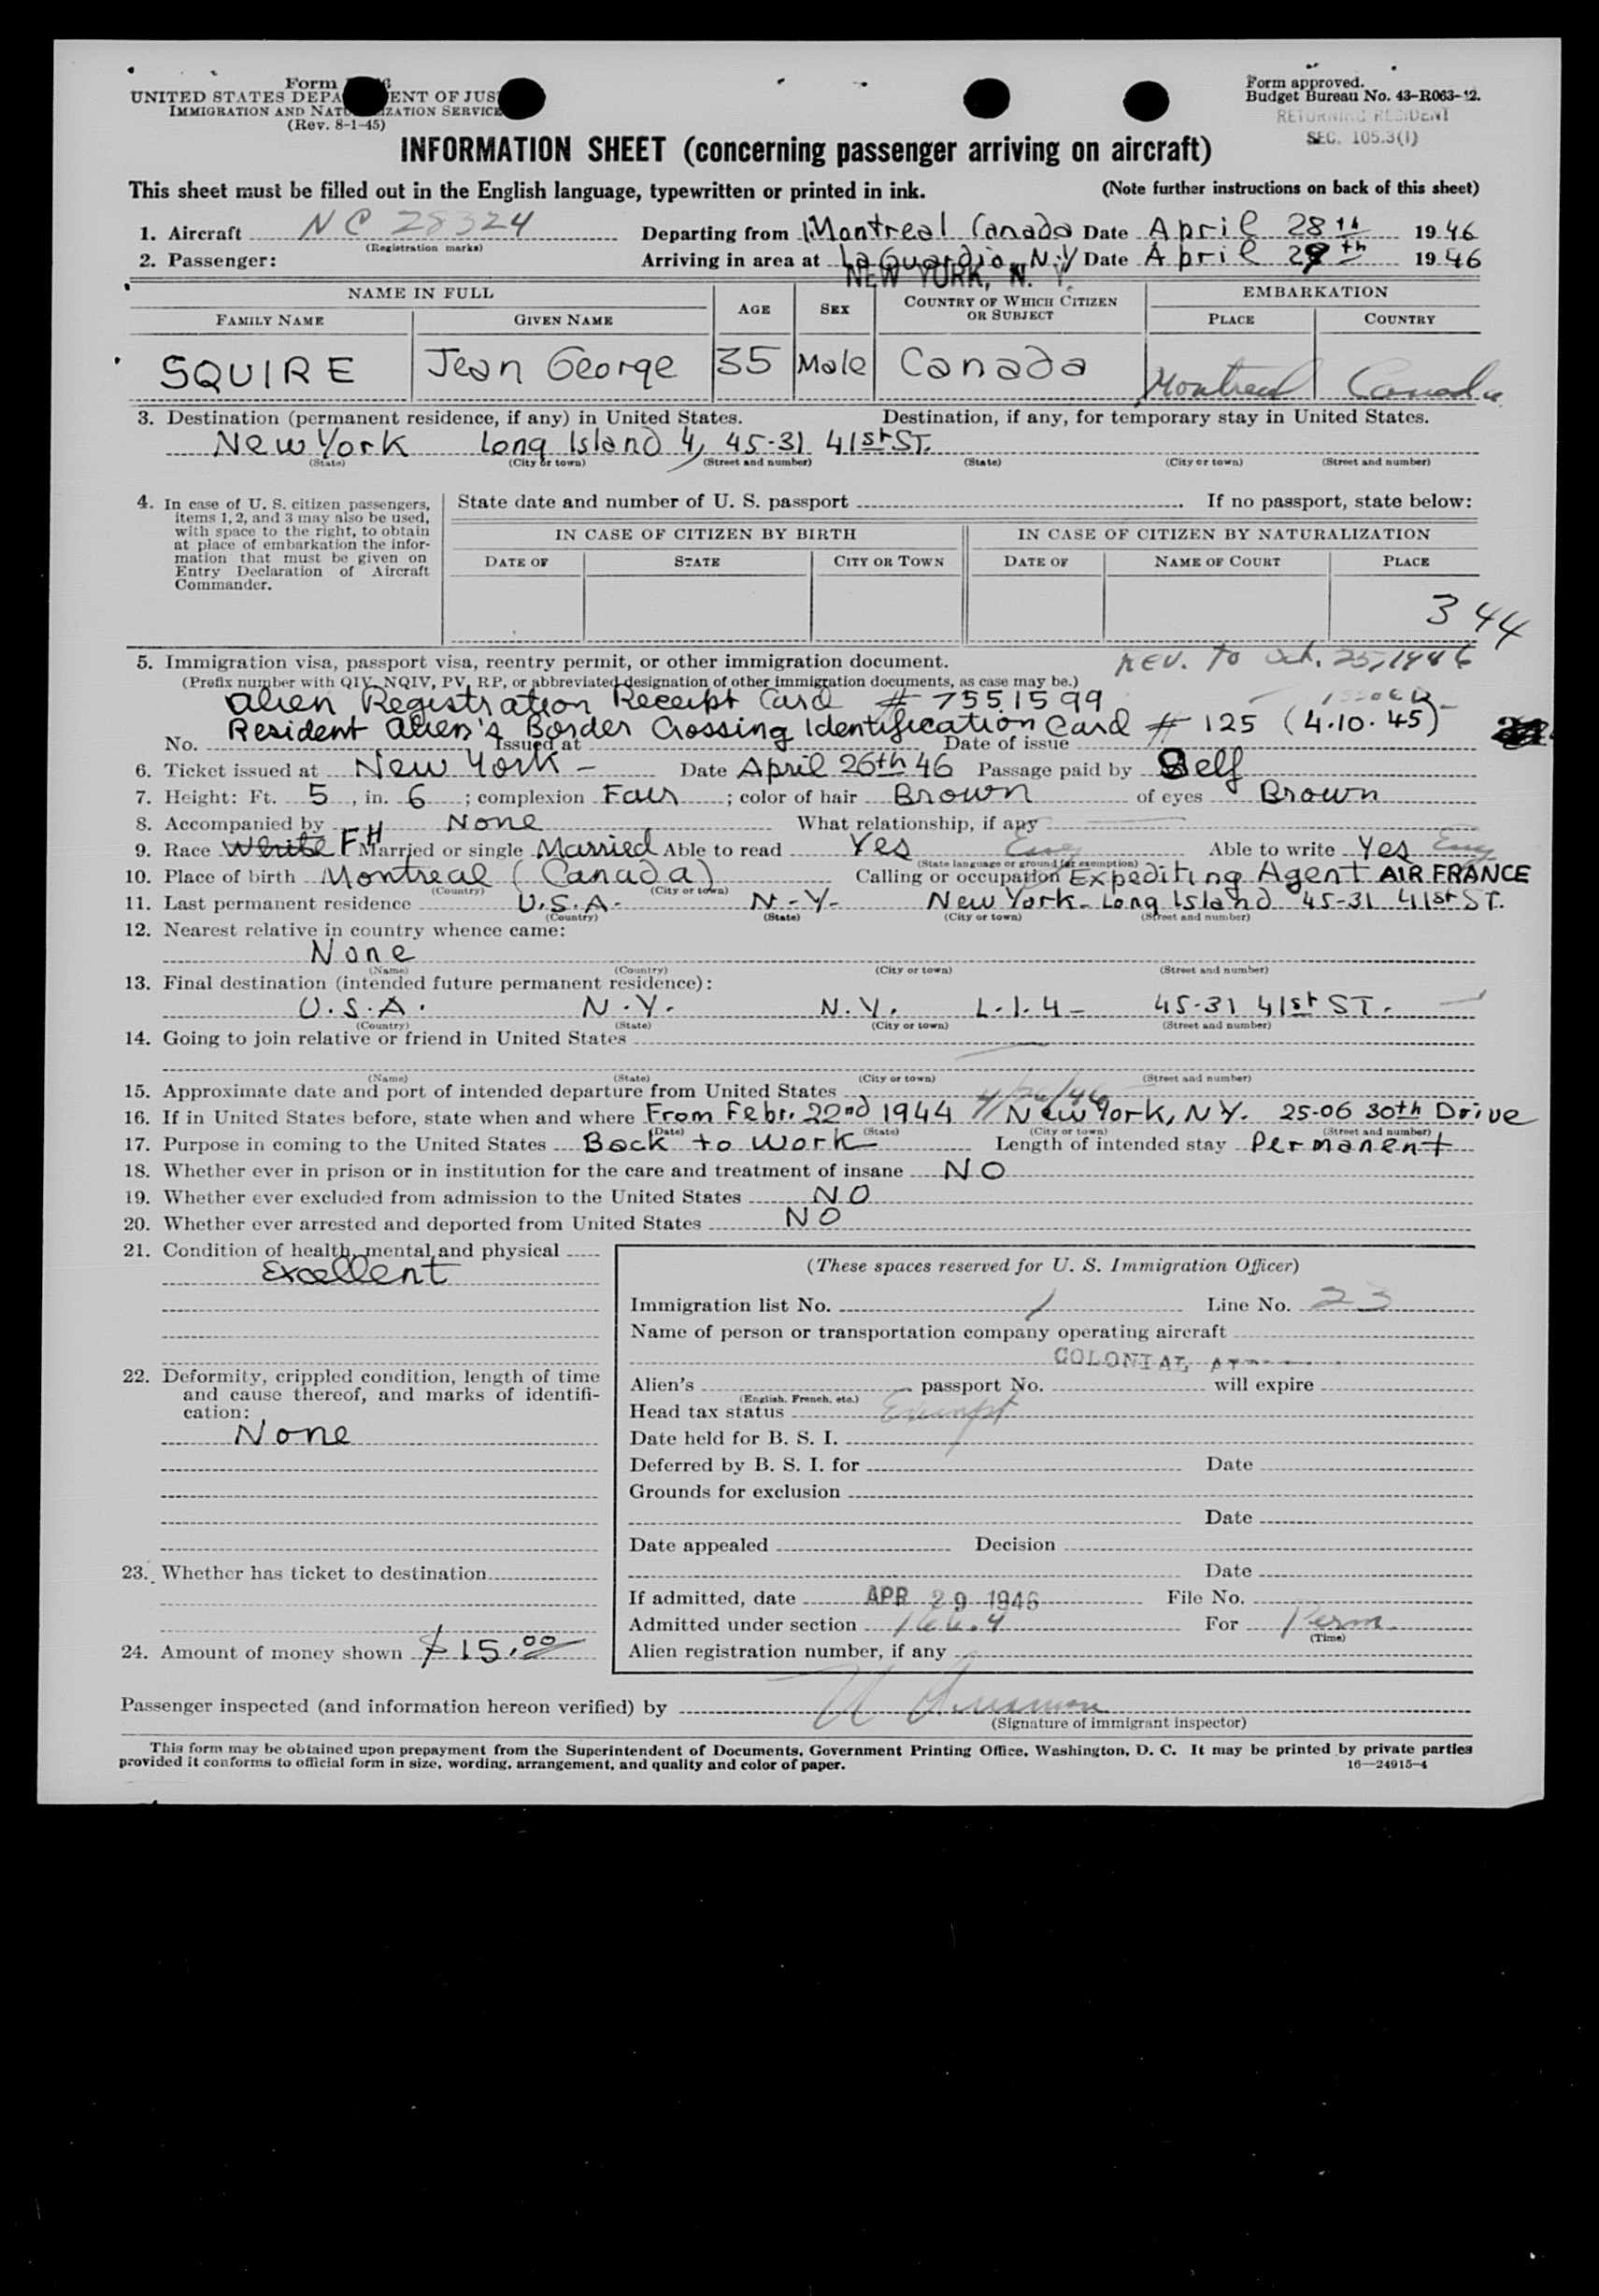 Form
UNITED STATES DEPA ENT OF JUS
IMMIGRATION AND NATU IZATION SERVICE
(Rev. 8-1-45)
Form approved.
Budget Bureau No. 43-R063-12.
RETURNING RESIDENT
SEC. 105.3(1)
INFORMATION SHEET (concerning passenger arriving on aircraft)
This sheet must be filled out in the English language, typewritten or printed in ink. (Note further instructions on back of this sheet)
1. Aircraft NC 28324 Departing from Montreal Canada Date April 28th 1946
(Registration marks)
2. Passenger: Arriving in area at La Guardia, N.Y Date April 29th 1946
NEW YORK, N. Y.
NAME IN FULL AGE SEX COUNTRY OF WHICH CITIZEN OR SUBJECT EMBARKATION
FAMILY NAME GIVEN NAME PLACE COUNTRY
SQUIRE Jean George 35 Male Canada Montreal Canada
3. Destination (permanent residence, if any) in United States. Destination, if any, for temporary stay in United States.
New York Long Island 4, 45-31 41st ST.
(State) (City or town) (Street and number) (State) (City or town) (Street and number)
4. In case of U. S. citizen passengers, items 1, 2, and 3 may also be used, with space to the right, to obtain at place of embarkation the information that must be given on Entry Declaration of Aircraft Commander.
State date and number of U. S. passport If no passport, state below:
IN CASE OF CITIZEN BY BIRTH IN CASE OF CITIZEN BY NATURALIZATION
DATE OF STATE CITY OR TOWN DATE OF NAME OF COURT PLACE
344
5. Immigration visa, passport visa, reentry permit, or other immigration document. REV. To Oct. 25, 1946
(Prefix number with QIV, NQIV, PV, RP, or abbreviated designation of other immigration documents, as case may be.)
Alien Registration Receipt Card # 7551599
Resident Alien's Border Crossing Identification Card # 125 (4.10.45)
No. Issued at Date of issue
6. Ticket issued at New York - Date April 26th 46 Passage paid by Self
7. Height: Ft. 5, in. 6; complexion Fair; color of hair Brown of eyes Brown
8. Accompanied by None What relationship, if any
9. Race White FH Married or single Married Able to read Yes Eng Able to write Yes Eng
(State language or ground for exemption)
10. Place of birth Montreal (Canada) Calling or occupation Expediting Agent AIR FRANCE
(Country) (City or town)
11. Last permanent residence U.S.A. N-Y- New York- Long Island 45-31 41st ST.
(Country) (State) (City or town) (Street and number)
12. Nearest relative in country whence came:
None
(Name) (Country) (City or town) (Street and number)
13. Final destination (intended future permanent residence):
U.S.A. N.Y. N.Y. L.I.4- 45-31 41st ST.
(Country) (State) (City or town) (Street and number)
14. Going to join relative or friend in United States
(Name) (State) (City or town) (Street and number)
15. Approximate date and port of intended departure from United States
4/26/46
16. If in United States before, state when and where From Febr. 22nd 1944 New York, NY. 25-06 30th Drive
(Date) (State) (City or town) (Street and number)
17. Purpose in coming to the United States Back to Work Length of intended stay Permanent
18. Whether ever in prison or in institution for the care and treatment of insane NO
19. Whether ever excluded from admission to the United States NO
20. Whether ever arrested and deported from United States NO
21. Condition of health, mental and physical
Excellent
22. Deformity, crippled condition, length of time and cause thereof, and marks of identification:
None
23. Whether has ticket to destination
24. Amount of money shown $15.00
(These spaces reserved for U. S. Immigration Officer)
Immigration list No. 1 Line No. 23
Name of person or transportation company operating aircraft
COLONIAL
Alien's passport No. will expire
(English, French, etc.)
Head tax status Exempt
Date held for B. S. I.
Deferred by B. S. I. for Date
Grounds for exclusion
Date
Date appealed Decision
Date
If admitted, date APR 29 1946 File No.
Admitted under section 166.4 For Perm.
(Time)
Alien registration number, if any
Passenger inspected (and information hereon verified) by
(Signature of immigrant inspector)
This form may be obtained upon prepayment from the Superintendent of Documents, Government Printing Office, Washington, D. C. It may be printed by private parties
provided it conforms to official form in size, wording, arrangement, and quality and color of paper. 16—24915-4